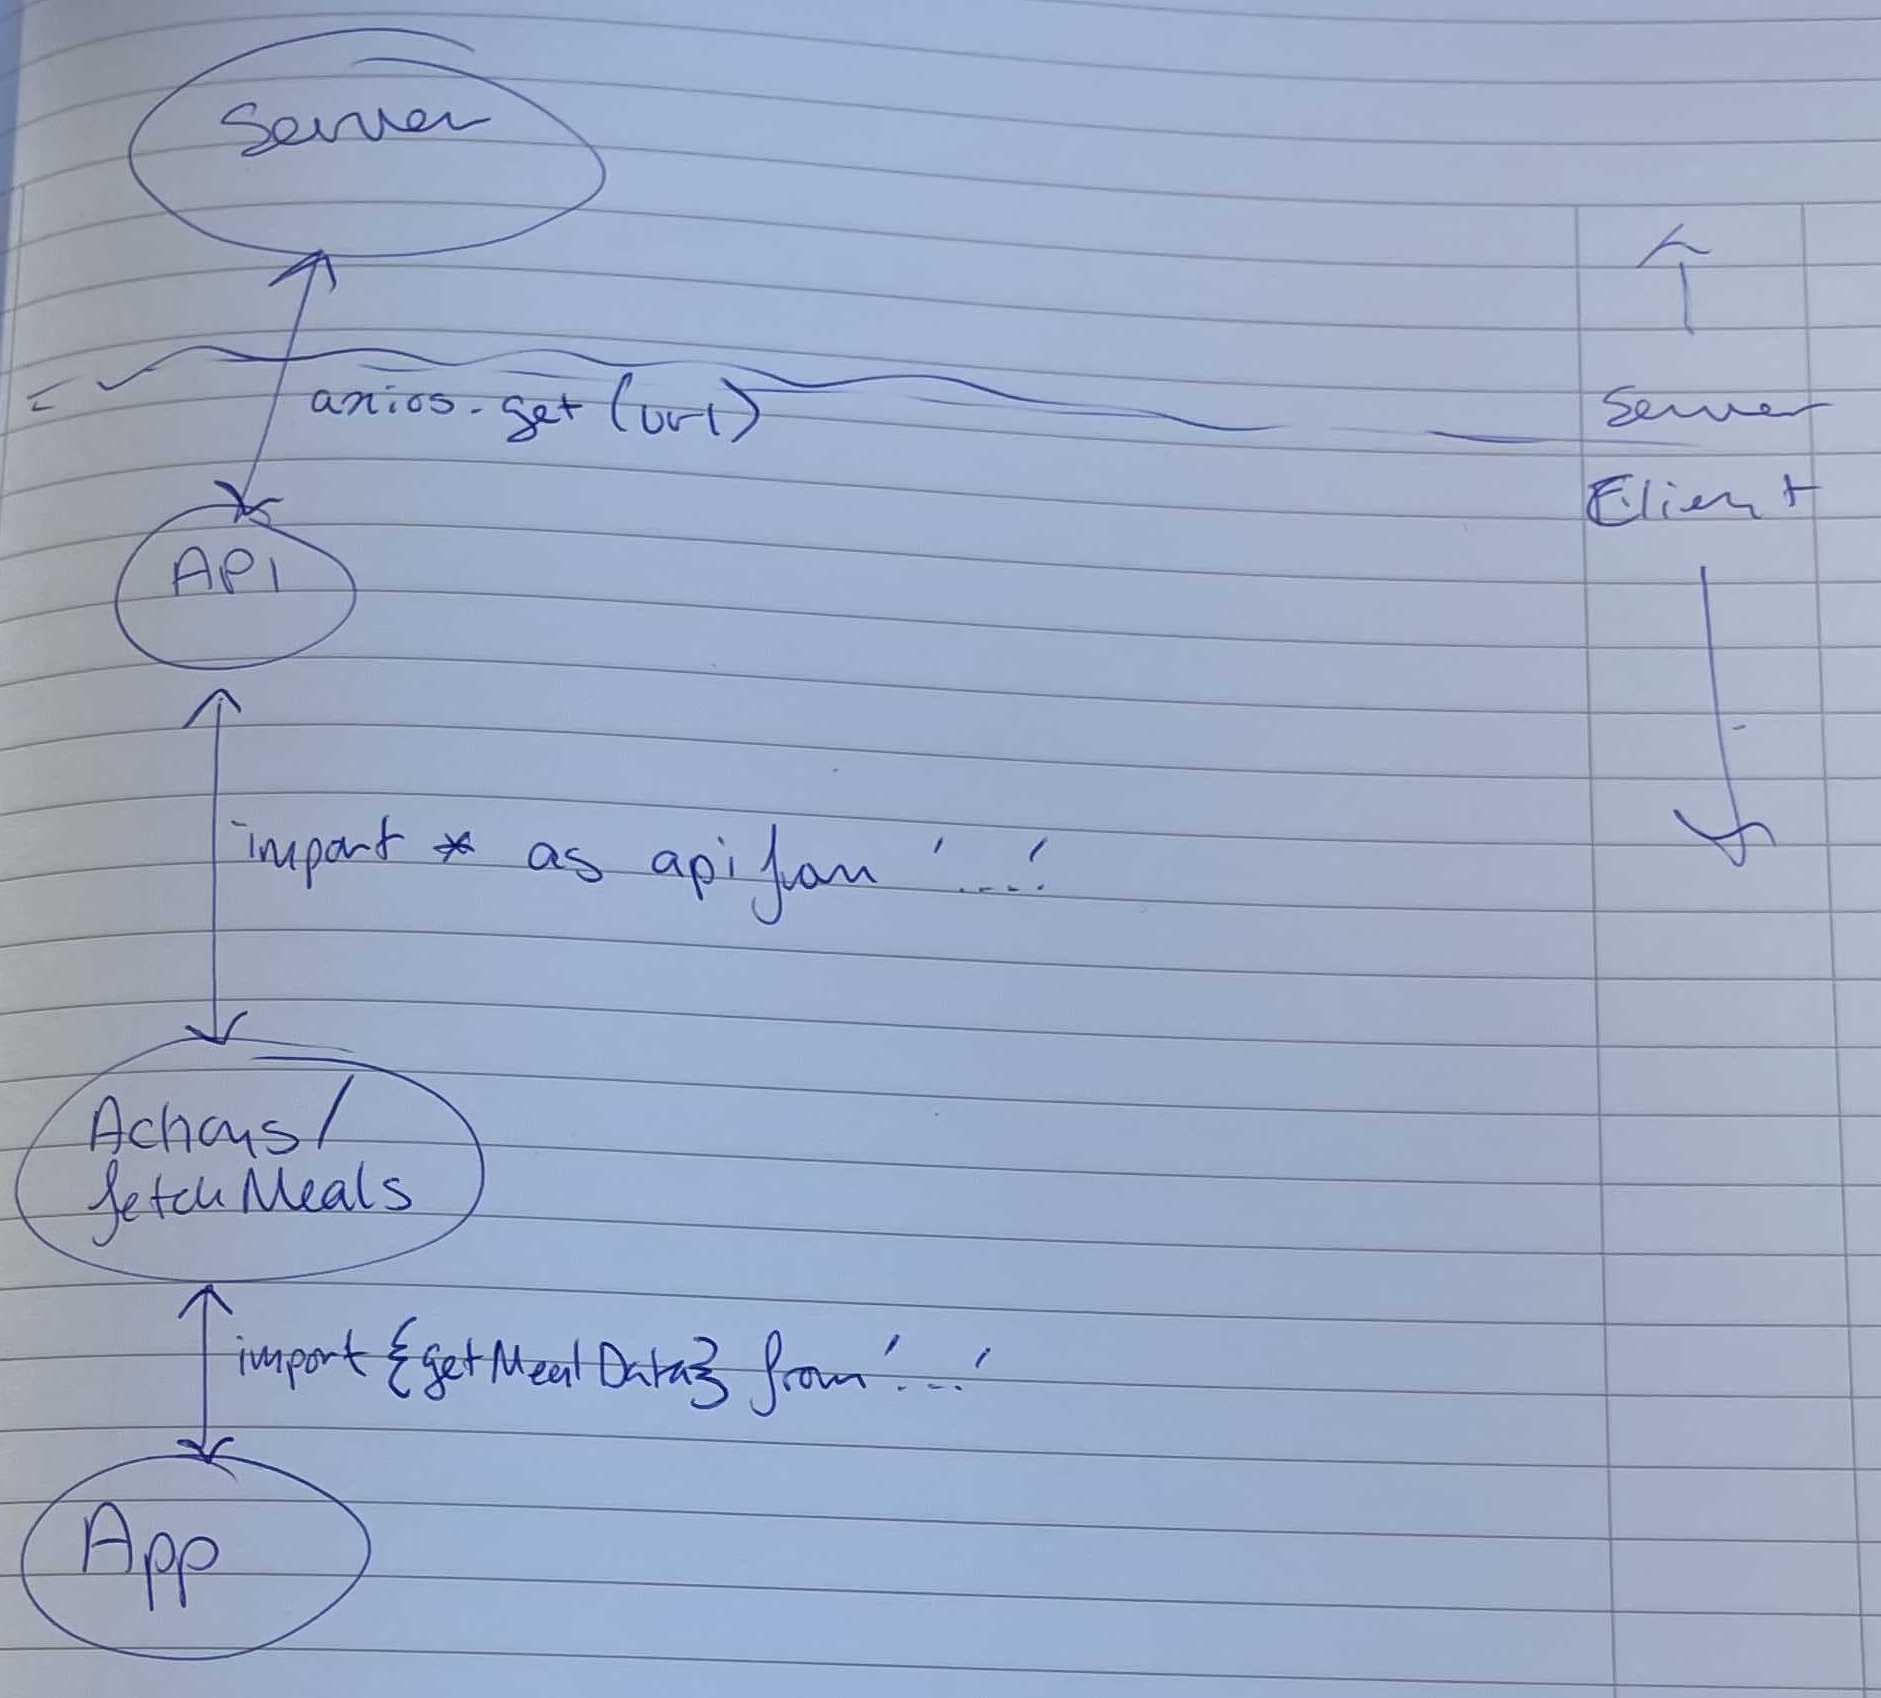 Server
axios.get(url)
Server
Client
API
import * as api from '...'
Actions/
fetchMeals
import {getMealData} from '...'
App